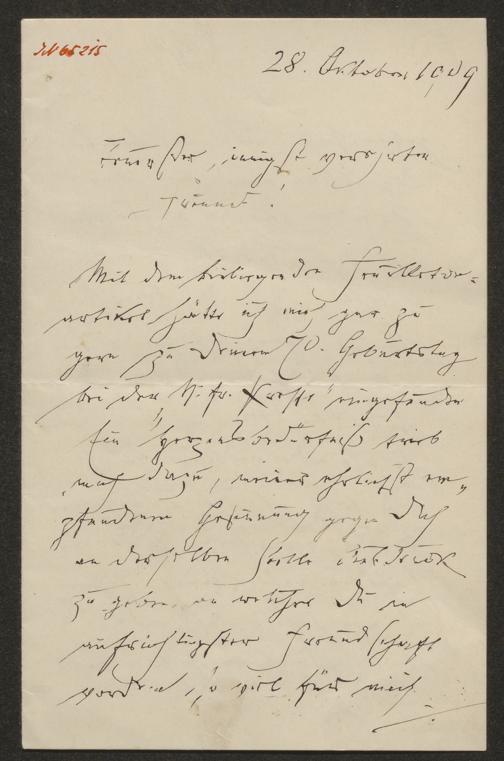 28. Oktober 1909
Teuerster, innigst verehrter
Freund!
Mit dem beiliegenden Feuilleton-
artikel hätte ich mich gar zu
gern zu Deinem 70. Geburtstag
bei der "N. fr. Presse" eingefunden
Ein Herzensbedürfniß trieb
mich dazu, meiner ehrlichst em-
pfundenen Gesinnung gegen Dich
an derselben Stelle Ausdruck
zu geben, an welcher Du in
aufrichtigster Freundschaft
so viel für mich